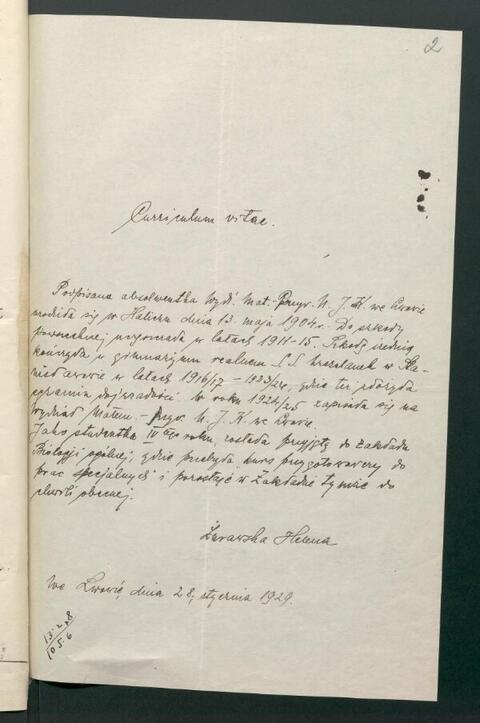 2
Curriculum vitae.
Podpisana absolwentka Wydz. Mat.-Przyr. U. J. K. we Lwowie
urodziła się w Haliczu dnia 13. maja 1904 r. Do szkoły
powszechnej uczęszczała w latach 1911-15. Szkołę średnią
kończyła w gimnazjum realnem S.S. Urszulanek w Sta-
nisławowie w latach 1916/17 - 1923/24, gdzie też złożyła
egzamin dojrzałości. W roku 1924/25 zapisała się na
Wydział Matem.-Przyr. U. J. K. we Lwowie.
Jako studentka IV ego roku, została przyjętą do Zakładu
Biologji ogólnej, gdzie przebyła kurs przygotowawczy do
prac specjalnych i pozostaje w Zakładzie tymże do
chwili obecnej.
Żurawska Helena
We Lwowie, dnia 28. stycznia 1929.